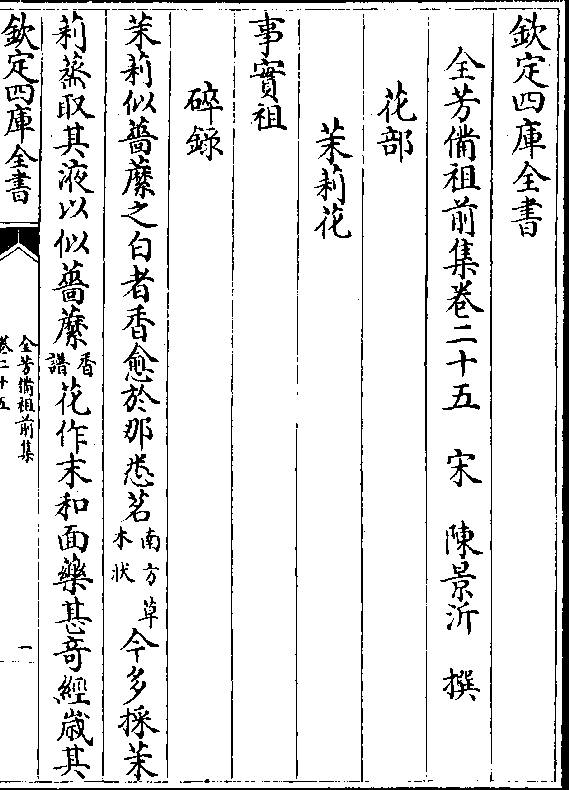 欽定四庫全書
全芳備祖前集卷二十五　宋　陳景沂　撰
花部
茉莉花
事實祖
碎録
茉莉似薔蘼之白者香愈於那悉茗南方草木狀今多採茉
莉蒸取其液以似薔蘼香譜花作末和面藥甚竒經歲其
欽定四庫全書
全芳備祖前集
卷二十五
一